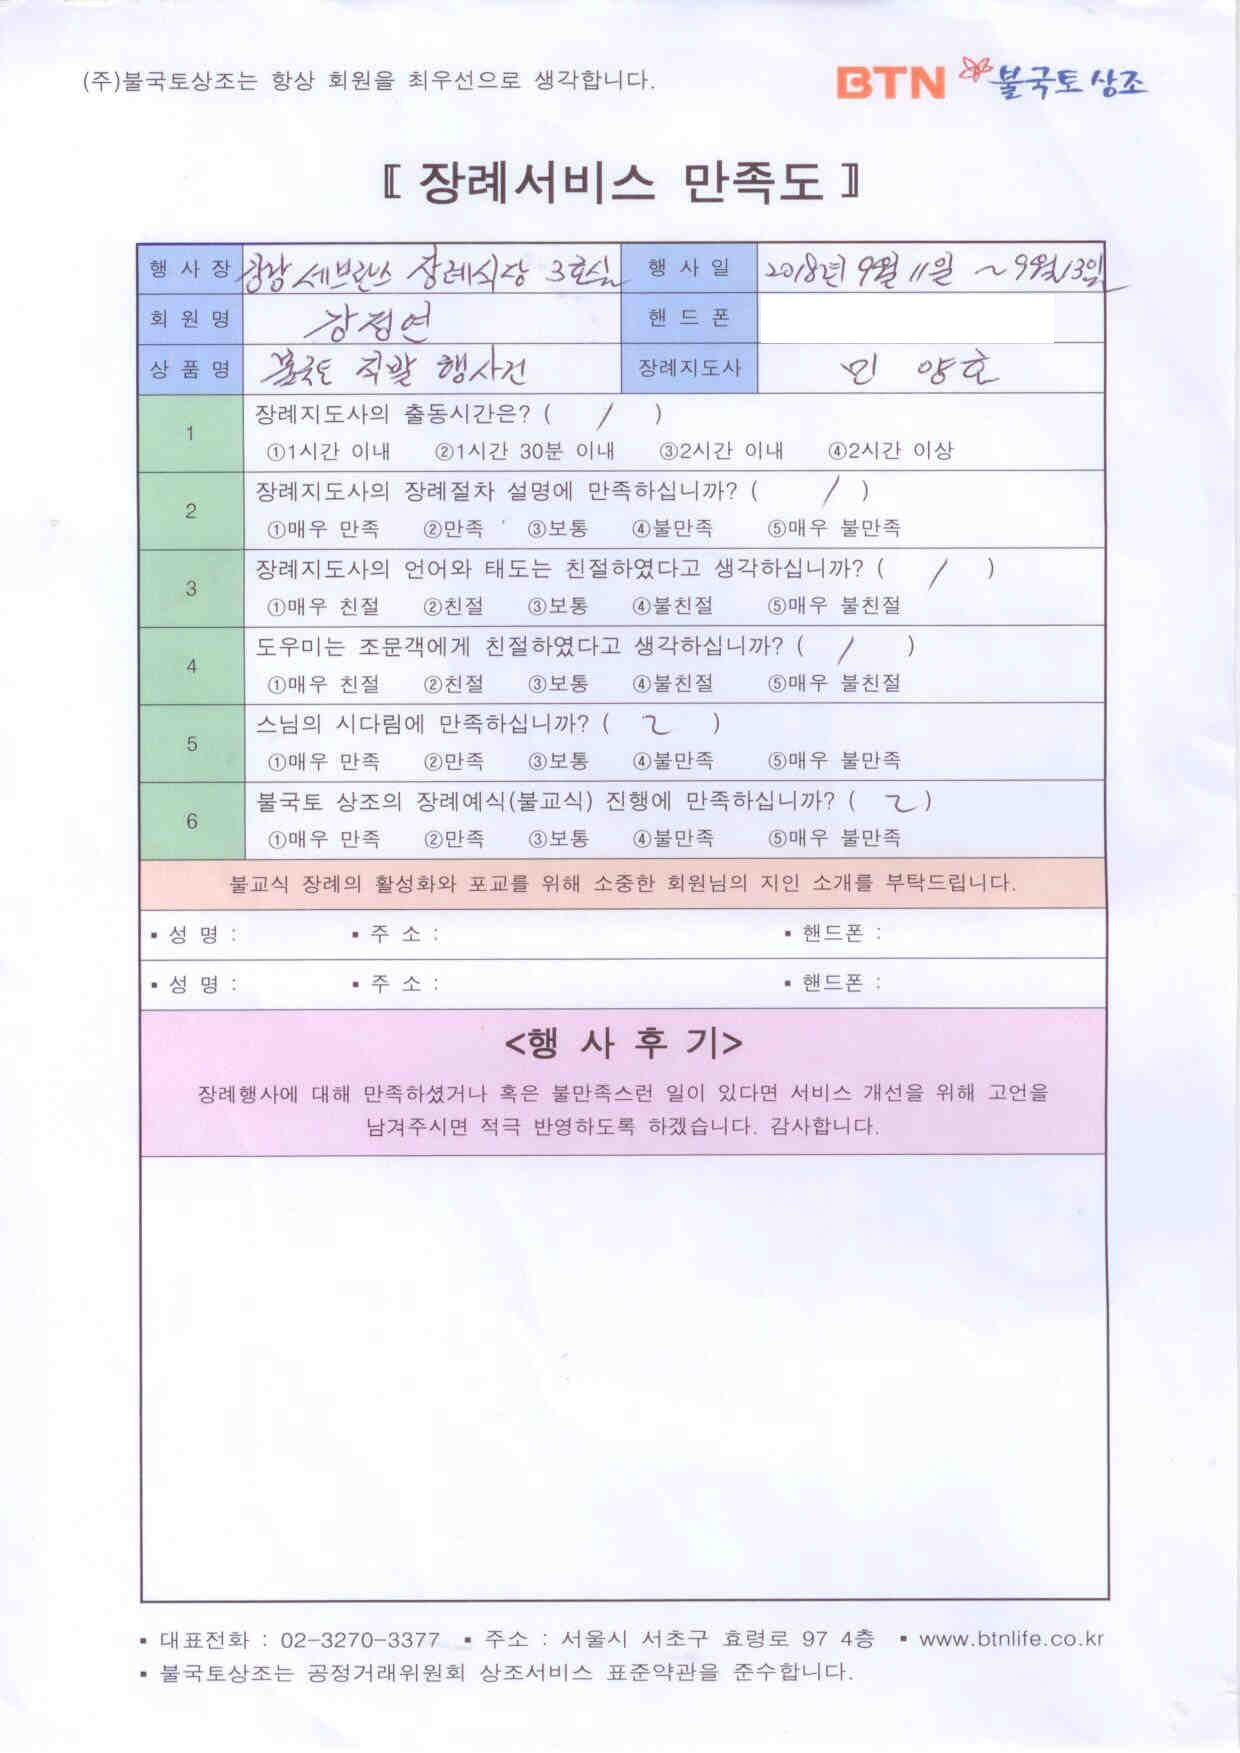 (주)불국토상조는 항상 회원을 최우선으로 생각합니다.
BTN 불국토 상조
〖 장례서비스 만족도 〗
행 사 장 세브란스 장례식당 3호실 행 사 일 2018년 9월 11일 ~ 9월 13일
회 원 명 강정연 핸 드 폰
상 품 명 불국토 직발 행사건 장례지도사 민 양호
1 장례지도사의 출동시간은? ( / )
①1시간 이내 ②1시간 30분 이내 ③2시간 이내 ④2시간 이상
2 장례지도사의 장례절차 설명에 만족하십니까? ( / )
①매우 만족 ②만족 ③보통 ④불만족 ⑤매우 불만족
3 장례지도사의 언어와 태도는 친절하였다고 생각하십니까? ( / )
①매우 친절 ②친절 ③보통 ④불친절 ⑤매우 불친절
4 도우미는 조문객에게 친절하였다고 생각하십니까? ( / )
①매우 친절 ②친절 ③보통 ④불친절 ⑤매우 불친절
5 스님의 시다림에 만족하십니까? ( 2 )
①매우 만족 ②만족 ③보통 ④불만족 ⑤매우 불만족
6 불국토 상조의 장례예식(불교식) 진행에 만족하십니까? ( 2 )
①매우 만족 ②만족 ③보통 ④불만족 ⑤매우 불만족
불교식 장례의 활성화와 포교를 위해 소중한 회원님의 지인 소개를 부탁드립니다.
▪ 성 명 : ▪ 주 소 : ▪ 핸드폰 :
▪ 성 명 : ▪ 주 소 : ▪ 핸드폰 :
<행 사 후 기>
장례행사에 대해 만족하셨거나 혹은 불만족스런 일이 있다면 서비스 개선을 위해 고언을
남겨주시면 적극 반영하도록 하겠습니다. 감사합니다.
▪ 대표전화 : 02-3270-3377 ▪ 주소 : 서울시 서초구 효령로 97 4층 ▪ www.btnlife.co.kr
▪ 불국토상조는 공정거래위원회 상조서비스 표준약관을 준수합니다.